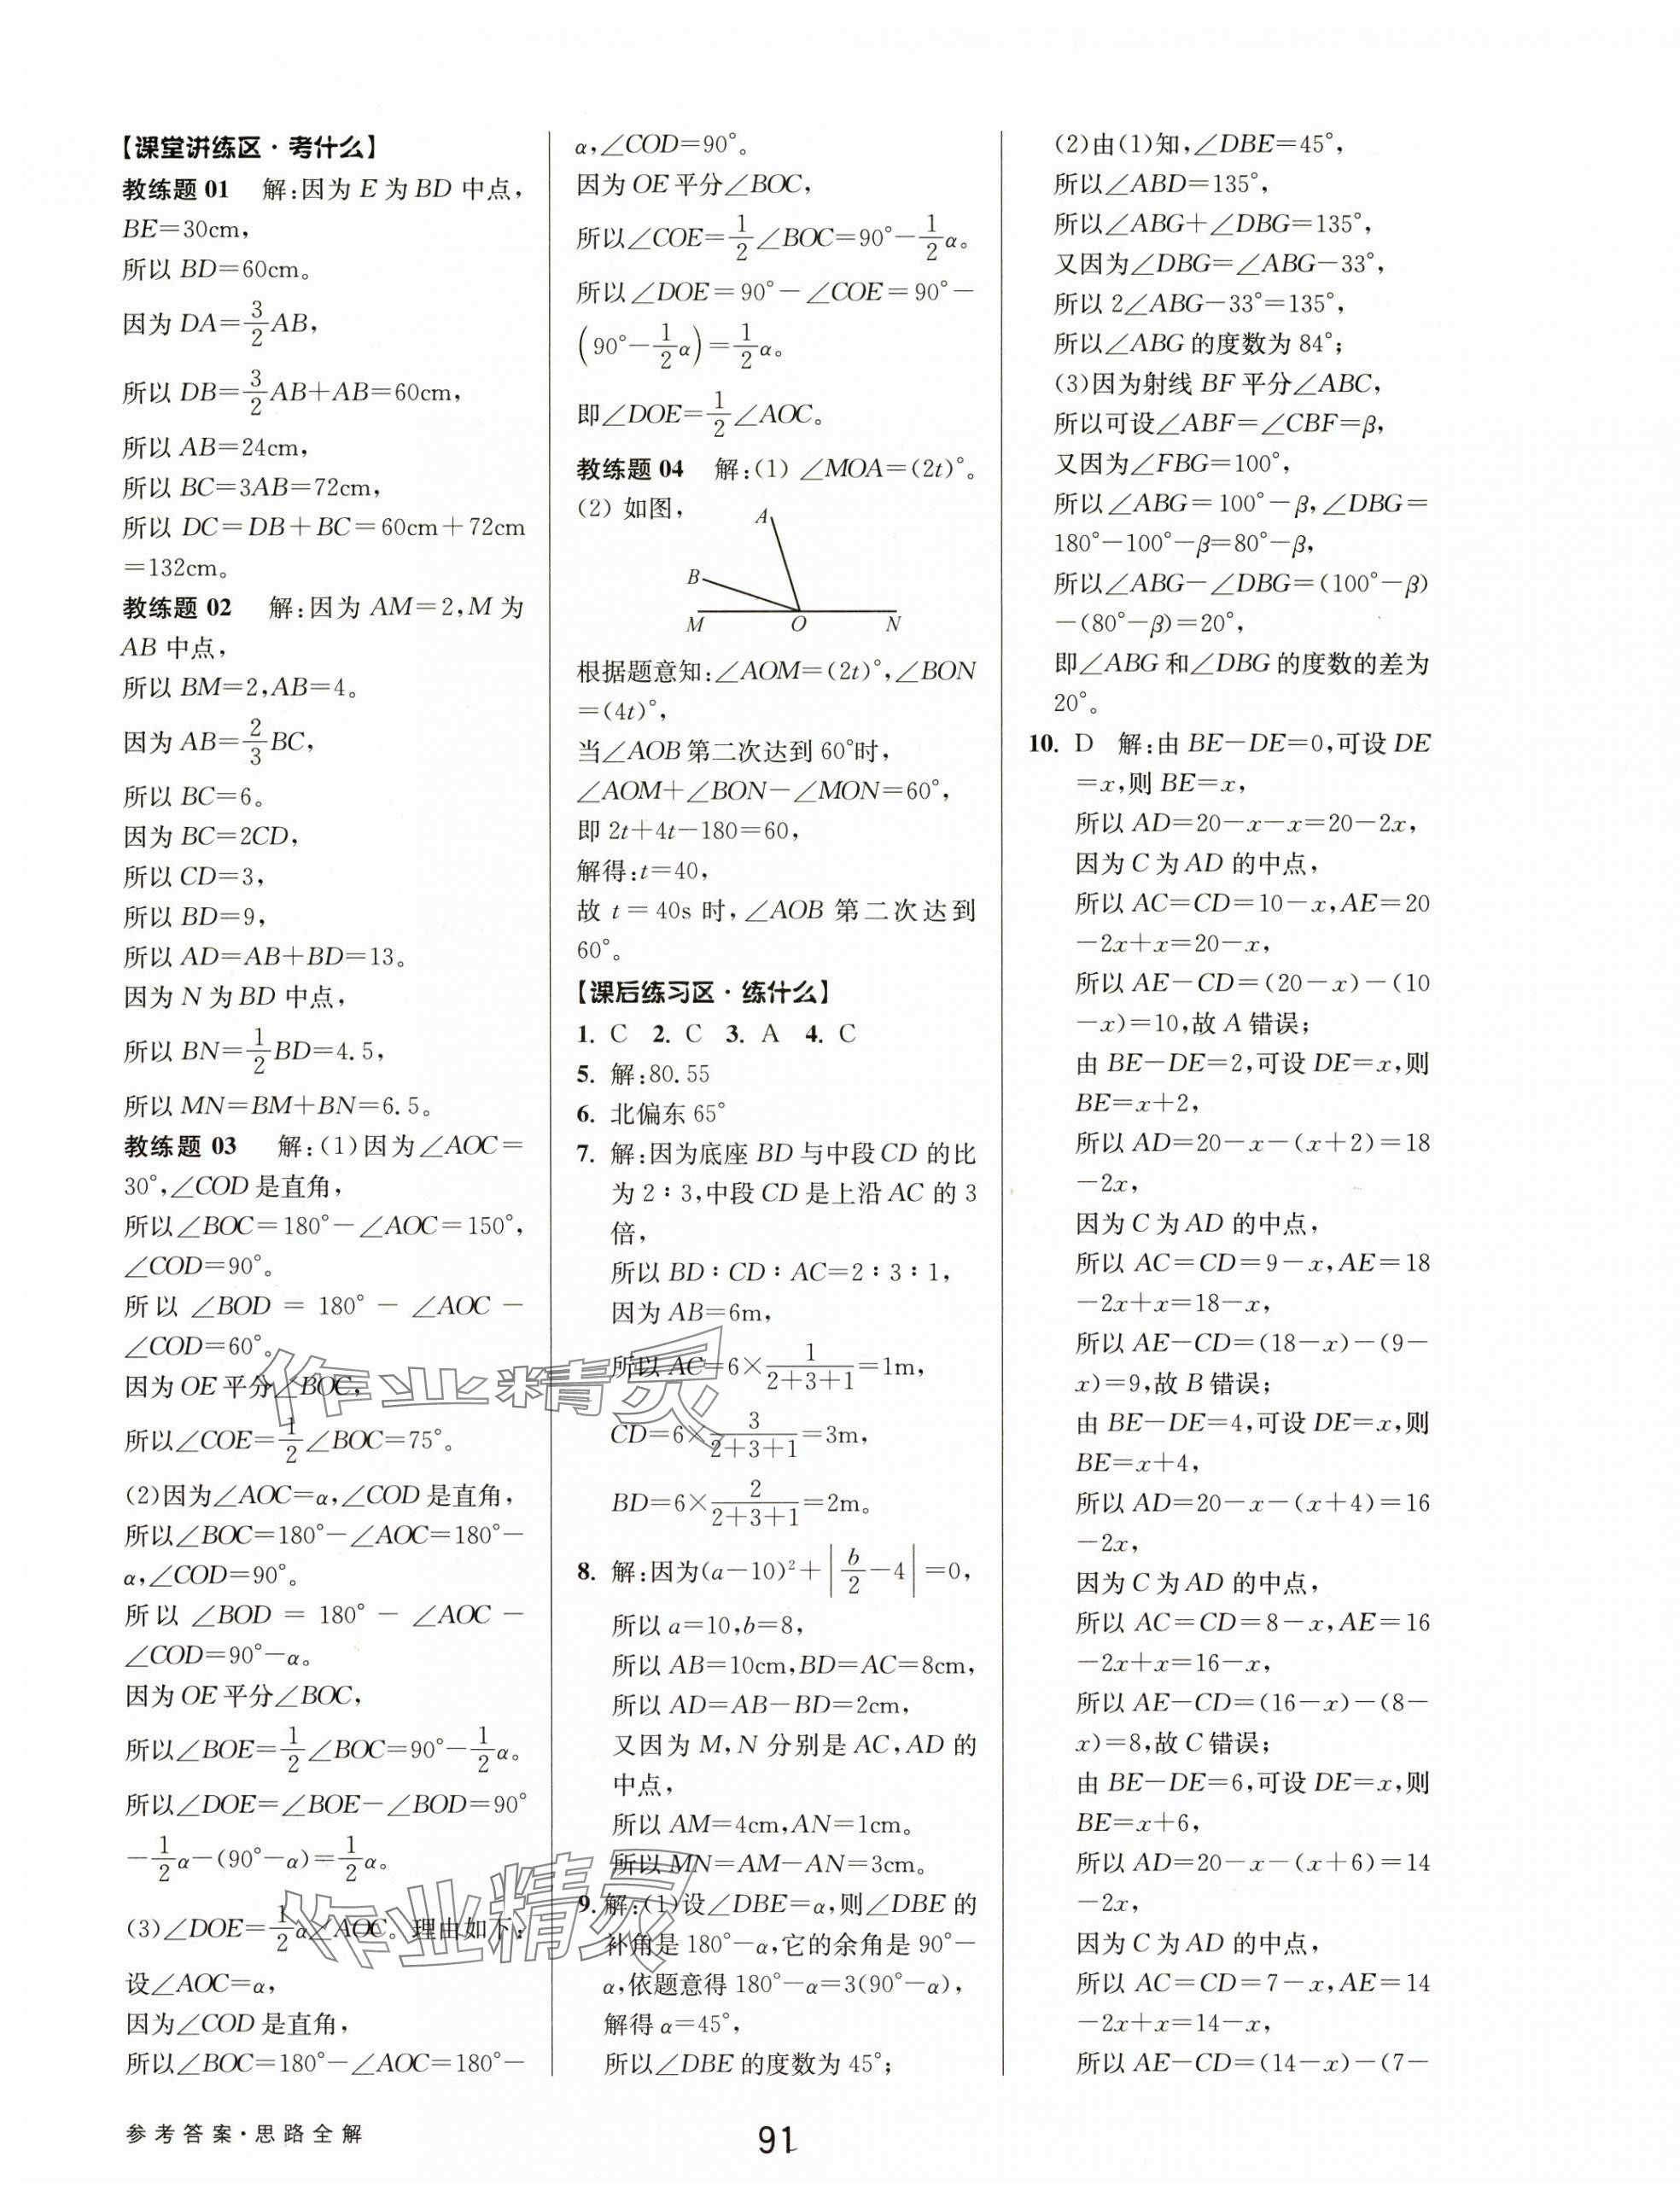 【课堂讲练区·考什么】
教练题 01 解:因为 E 为 BD 中点,
BE=30cm,
所以 BD=60cm。
因为 DA=3/2AB,
所以 DB=3/2AB+AB=60cm,
所以 AB=24cm,
所以 BC=3AB=72cm,
所以 DC=DB+BC=60cm+72cm
=132cm。
教练题 02 解:因为 AM=2,M 为
AB 中点,
所以 BM=2,AB=4。
因为 AB=2/3BC,
所以 BC=6。
因为 BC=2CD,
所以 CD=3,
所以 BD=9,
所以 AD=AB+BD=13。
因为 N 为 BD 中点,
所以 BN=1/2BD=4.5,
所以 MN=BM+BN=6.5。
教练题 03 解:(1)因为∠AOC=
30°,∠COD 是直角,
所以∠BOC=180°-∠AOC=150°,
∠COD=90°。
所以 ∠BOD = 180° - ∠AOC -
∠COD=60°。
因为 OE 平分∠BOC,
所以∠COE=1/2∠BOC=75°。
(2)因为∠AOC=α,∠COD 是直角,
所以∠BOC=180°-∠AOC=180°-
α,∠COD=90°。
所以 ∠BOD = 180° - ∠AOC -
∠COD=90°-α。
因为 OE 平分∠BOC,
所以∠BOE=1/2∠BOC=90°-1/2α。
所以∠DOE=∠BOE-∠BOD=90°
-1/2α-(90°-α)=1/2α。
(3)∠DOE=1/2α∠AOC。理由如下:
设∠AOC=α,
因为∠COD 是直角,
所以∠BOC=180°-∠AOC=180°-
α,∠COD=90°。
因为 OE 平分∠BOC,
所以∠COE=1/2∠BOC=90°-1/2α。
所以∠DOE=90°-∠COE=90°-
(90°-1/2α)=1/2α。
即∠DOE=1/2∠AOC。
教练题 04 解:(1) ∠MOA=(2t)°。
(2) 如图,
A
B
M O N
根据题意知:∠AOM=(2t)°,∠BON
=(4t)°,
当∠AOB 第二次达到 60°时,
∠AOM+∠BON-∠MON=60°,
即 2t+4t-180=60,
解得:t=40,
故 t = 40s 时,∠AOB 第二次达到
60°。
【课后练习区·练什么】
1. C 2. C 3. A 4. C
5. 解:80.55
6. 北偏东 65°
7. 解:因为底座 BD 与中段 CD 的比
为 2:3,中段 CD 是上沿 AC 的 3
倍,
所以 BD:CD:AC=2:3:1,
因为 AB=6m,
所以 AC=6×1/(2+3+1)=1m,
CD=6×3/(2+3+1)=3m,
BD=6×2/(2+3+1)=2m。
8. 解:因为(a-10)²+|b/2-4|=0,
所以 a=10,b=8,
所以 AB=10cm,BD=AC=8cm,
所以 AD=AB-BD=2cm,
又因为 M,N 分别是 AC,AD 的
中点,
所以 AM=4cm,AN=1cm。
所以 MN=AM-AN=3cm。
9. 解:(1)设∠DBE=α,则∠DBE 的
补角是 180°-α,它的余角是 90°-
α,依题意得 180°-α=3(90°-α),
解得 α=45°,
所以∠DBE 的度数为 45°;
(2)由(1)知,∠DBE=45°,
所以∠ABD=135°,
所以∠ABG+∠DBG=135°,
又因为∠DBG=∠ABG-33°,
所以 2∠ABG-33°=135°,
所以∠ABG 的度数为 84°;
(3)因为射线 BF 平分∠ABC,
所以可设∠ABF=∠CBF=β,
又因为∠FBG=100°,
所以∠ABG=100°-β,∠DBG=
180°-100°-β=80°-β,
所以∠ABG-∠DBG=(100°-β)
-(80°-β)=20°,
即∠ABG 和∠DBG 的度数的差为
20°。
10. D 解:由 BE-DE=0,可设 DE
=x,则 BE=x,
所以 AD=20-x-x=20-2x,
因为 C 为 AD 的中点,
所以 AC=CD=10-x,AE=20
-2x+x=20-x,
所以 AE-CD=(20-x)-(10
-x)=10,故 A 错误;
由 BE-DE=2,可设 DE=x,则
BE=x+2,
所以 AD=20-x-(x+2)=18
-2x,
因为 C 为 AD 的中点,
所以 AC=CD=9-x,AE=18
-2x+x=18-x,
所以 AE-CD=(18-x)-(9-
x)=9,故 B 错误;
由 BE-DE=4,可设 DE=x,则
BE=x+4,
所以 AD=20-x-(x+4)=16
-2x,
因为 C 为 AD 的中点,
所以 AC=CD=8-x,AE=16
-2x+x=16-x,
所以 AE-CD=(16-x)-(8-
x)=8,故 C 错误;
由 BE-DE=6,可设 DE=x,则
BE=x+6,
所以 AD=20-x-(x+6)=14
-2x,
因为 C 为 AD 的中点,
所以 AC=CD=7-x,AE=14
-2x+x=14-x,
所以 AE-CD=(14-x)-(7-
作业精灵
作业精灵
参考答案·思路全解
91